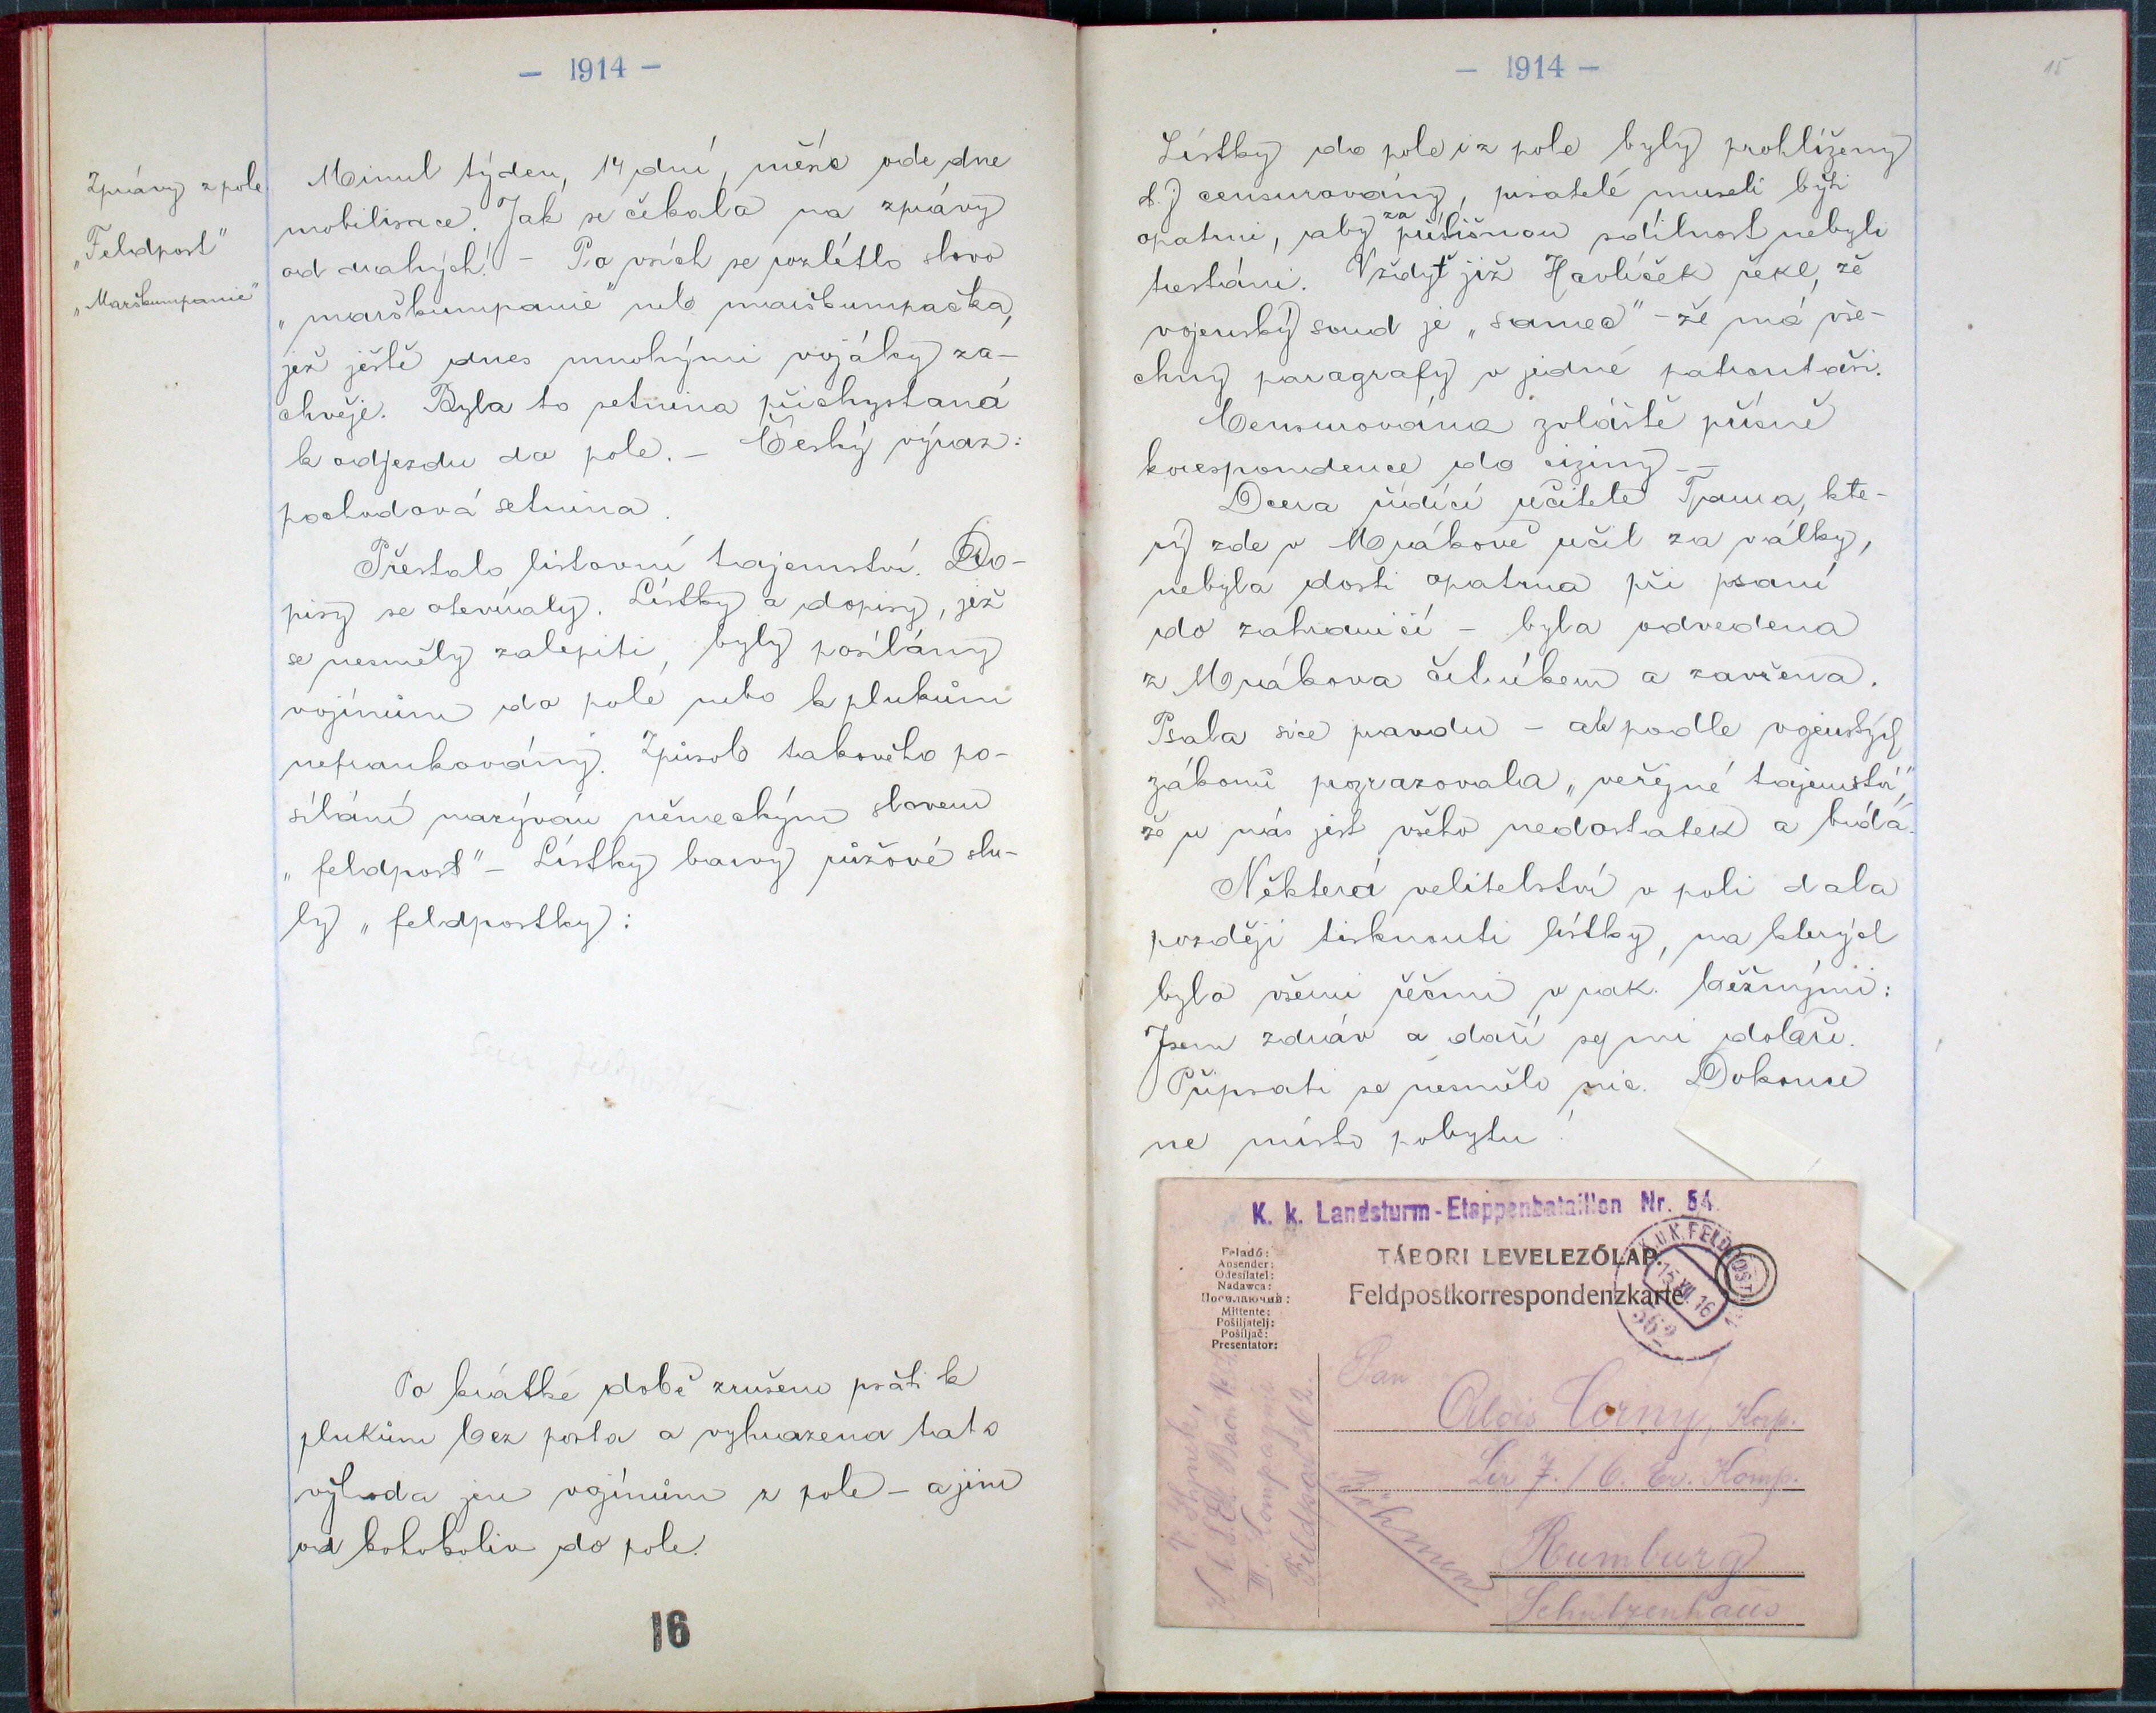 - 1914 -
Zprávy z pole
„Feldpost"
„Marškumpanie"
Minul týden, 14 dní, měsíc ode dne
mobilisace. Jak se čekalo na zprávy
od drahých! - Po vsích se rozlétlo slovo
„marškumpanie" neb marškumpačka,
jež ještě dnes mnohými vojáky za-
chvěje. Byla to setnina přichystaná
k odjezdu do pole. - Český výraz:
pochodová setnina.
Přestalo listovní tajemství. Do-
pisy se otevíraly. Lístky a dopisy, jež
se nesměly zalepiti, byly posílány
vojínům do pole nebo k plukům
nefrankovány. Způsob takového po-
sílání nazýván německým slovem
„feldpost" - Lístky barvy růžové slu-
ly „feldpostky):
Po krátké době zrušeno psáti k
plukům bez porta a vyhrazena tato
výhoda jen vojínům z pole - a jim
od kohokoliv do pole.
16
- 1914 -
15
Lístky do pole i z pole byly prohlíženy
t.j censurovány, pisatelé museli býti
opatrni, aby za přílišnou sdílnost nebyli
trestáni. Vždyť již Havlíček řekl, že
vojenský soud je „samec" - že má vše-
chny paragrafy v jedné patrontaši.
Censurována zvláště přísně
korespondence do ciziny. -
Dcera řídící učitele Tpama, kte-
rý zde v Mrákově učil za války,
nebyla dosti opatrna při psaní
do zahraničí - byla odvedena
z Mrákova četníkem a zavřena.
Psala sice pravdu - ale podle vojenských
zákonů prozrazovala „veřejné tajemství",
že u nás jest všeho nedostatek a bída.
Některá velitelství v poli dala
později tisknouti lístky, na kterých
bylo všemi řečmi v rak. běžnými:
Jsem zdráv a daří se mi dobře.
Připsati se nesmělo nic. Dokonce
ne místo pobytu!
K. k. Landsturm-Etappenbataillon Nr. 54.
Feladó:
Absender:
Odesílatel:
Nadawca:
Посилаючий:
Mittente:
Pošiljatelj:
Pošiljač:
Presentator:
TÁBORI LEVELEZŐLAP.
Feldpostkorrespondenzkarte
K.U.K. FELDPOST
15 XII. 16
562
Pan
Alois Cerny, Korp.
Lir 7. / 6. Er. Komp.
Rumburg
Schützenhaus
Böhmen
III. Kompagnie
Feldpost 562.